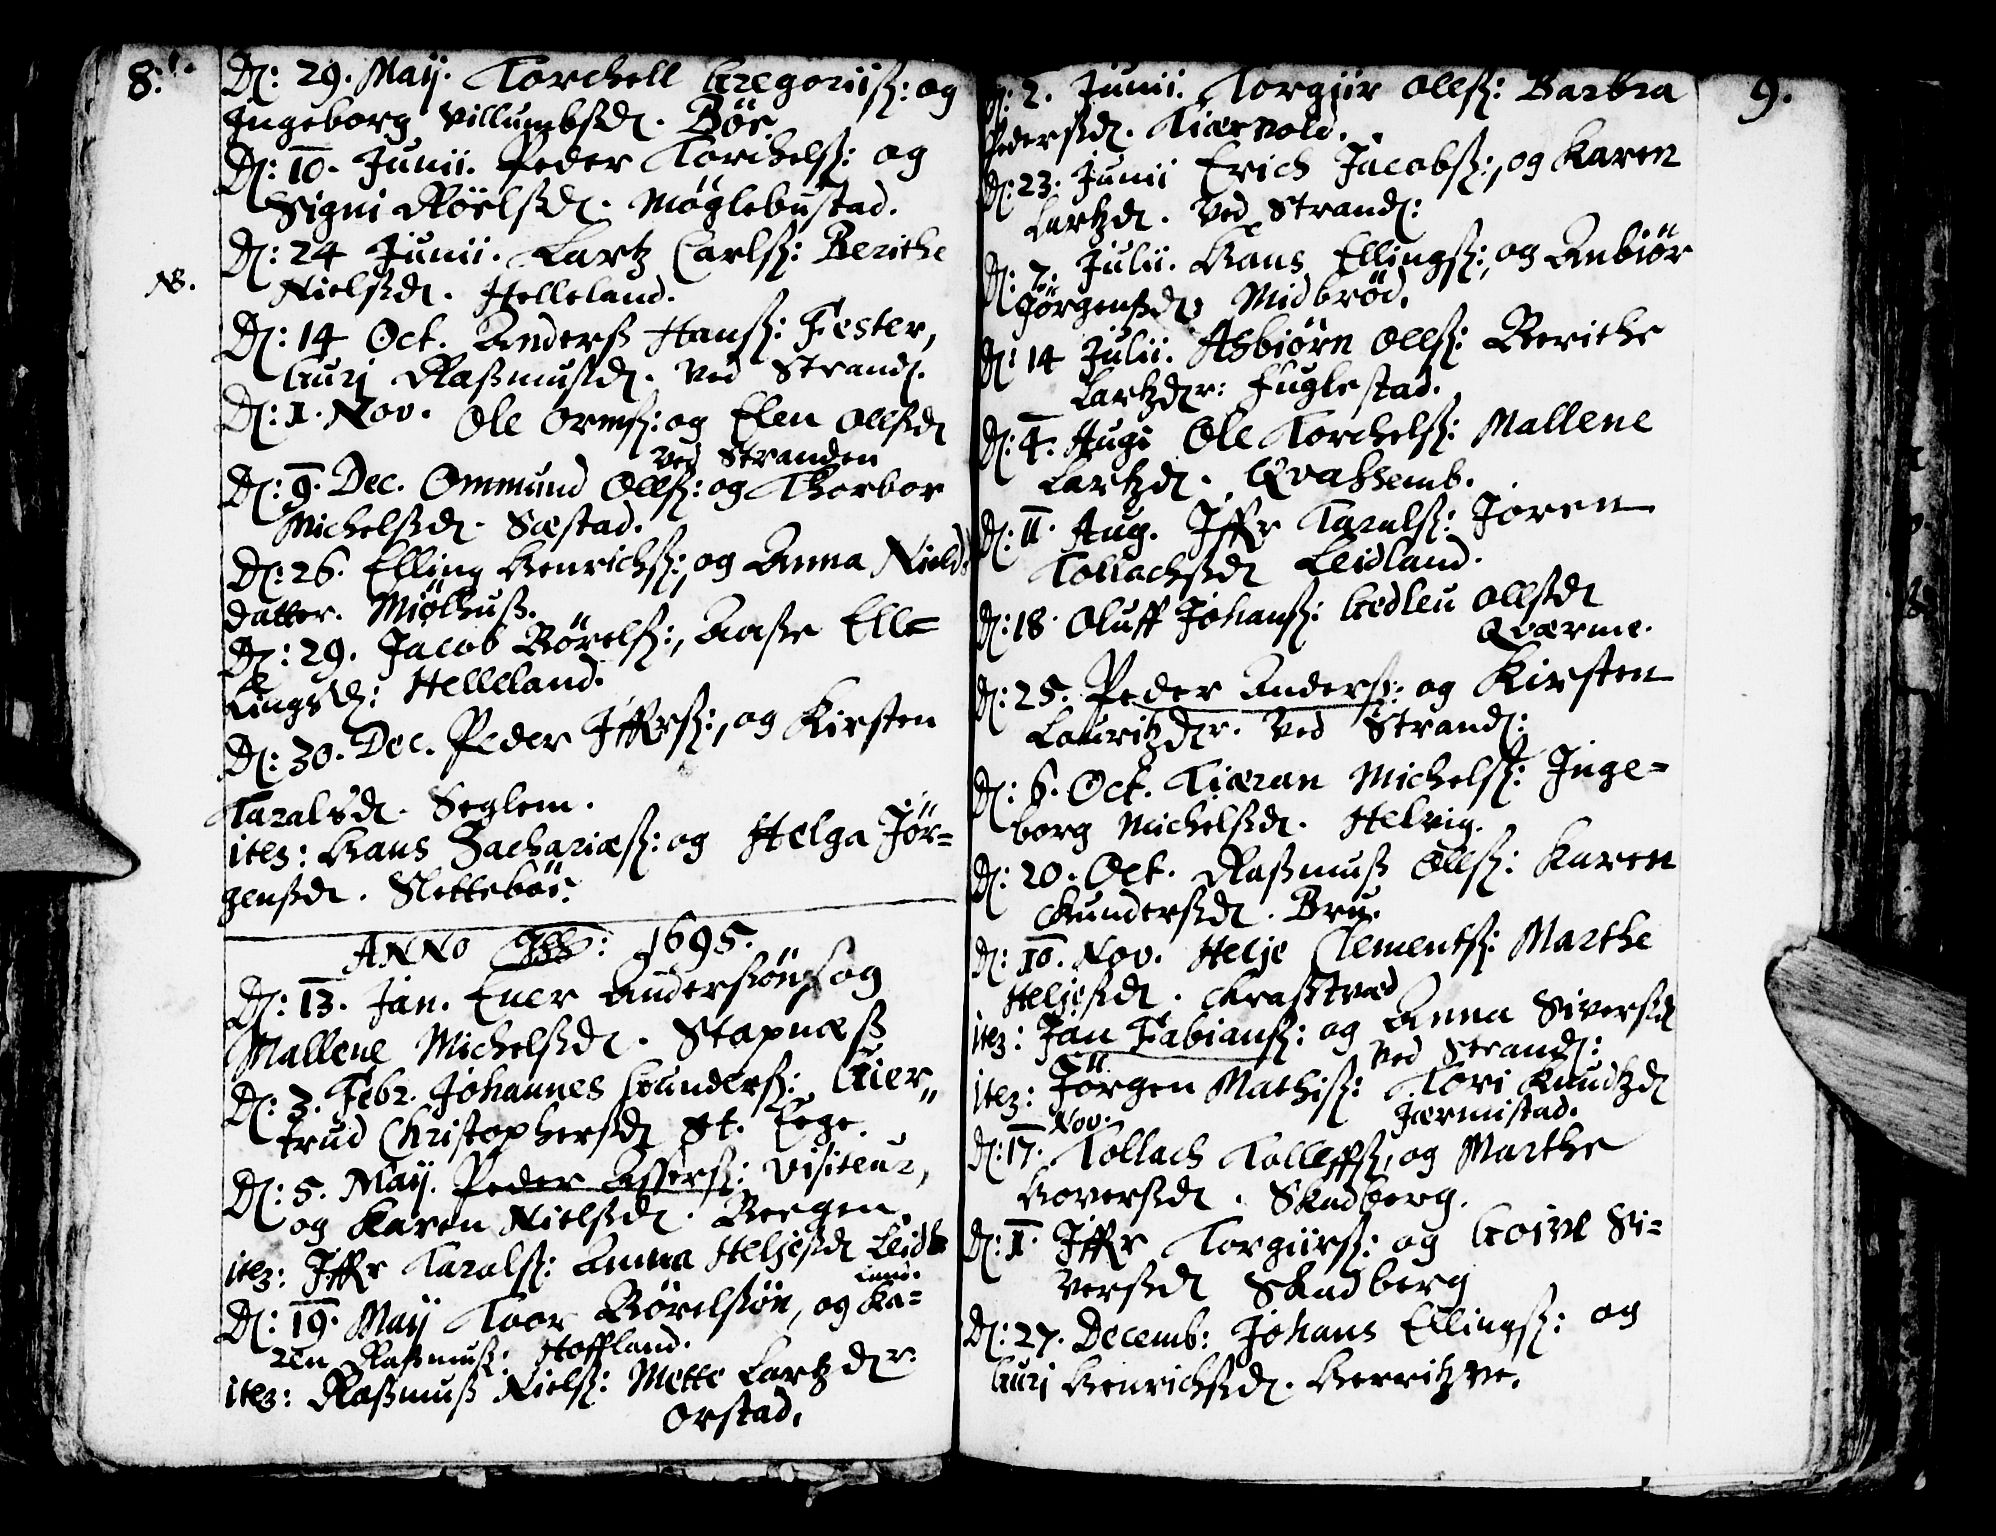 8.
D: 29. Maij. Torchell Gregoriiß: og
Ingeborg Villumbsd. Böe.
D: 10. Junii. Peder Torchelß: og
Signi Röelsd. Möglebustad.
D: 24 Junii. Lartz Carlß: Berithe
NB.
Nielsd. Helleland.
D: 14 Oct. Anderß Hanß: Fester,
Guri Raßmusd. Ved Strand.
D: 1. Nov. Ole Ormß: og Elen Ollsd
Ved Stranden
D: 9. Dec. Ommund Ollß: og Thorbor
Michelsd. Sæstad.
D: 26. Elling Henrichß:, og Anna Niels
datter. Miölhuß.
D: 29. Jacob Börelß:, Aaße Elle=
lingsd: Helleland.
D: 30. Dec. Peder Iffrß:, og Kirsten
Taralsd. Seglem.
ites: Hans Zachariæß: og Helga Jör=
gensd. Sletteböe.
ANNO 1695.
D: 13. Jan. Ener Anderßön og
Mallene Michelsd. Stapnæß
D: 3. Febr. Johannes Gunderß: Gier„
trud Christophersd St. Eege.
D: 5. Maij. Peder Asserß: Visiteur,
og Karen Nielsd. Bergen.
ites: Iffr Taralß: Anna Heljesd Leid
land.
D: 19. Maij Toor Börelßön, og Ka=
ren Raßmuß: Hoffland.
ites: Raßmuß Nielß: Mette Lartzdr:
Orstad.
9.
D: 2. Junii. Torgiir Ollß: Barbra
Pedersd. Tiærnold.
D: 23. Junii Erich Jacobß:, og Karen
Lartzd. Ved Strand:
D: 7. Julii. Hans Ellingß:, og Anbiör
Jörgensd: Midbröd.
D: 14 Julii. Asbiörn Ollß: Berithe
Lartzdr: Fuglestad.
D: 4. Augi Ole Torchelß: Mallene
Lartzd. Qvaßhemb.
D: 11. Aug. Iffr Taralß: Joren
Tollachsd Leidland.
D: 18. Oluff Johanß: Gedleu Ollsd
Qværme.
D: 25. Peder Anderß: og Kirsten
Lauritzdr. Ved Strand:
D: 6. Oct. Tiæran Michelß: Inge=
borg Michelsd. Helvig.
D: 20. Oct. Raßmuß Ollß: Karen
Gundersd. Bru.
D: 10. Nov. Helje Clementß: Marthe
Heljesd.
ites: Jan Fabianß: og Anna Siversd
Ved Strand:
ites: Jörgen Mathiß: Tori Knudtzd
Jærmistad.
Nov.
D: 17. Tollach Tolleffß, og Marthe
Goversd. Skadberg.
D: 1. Iffr Torgiirß: og Goive Si=
versd Skadberg
D: 27. Decemb: Johans Ellingß: og
Guri Henrichsd.